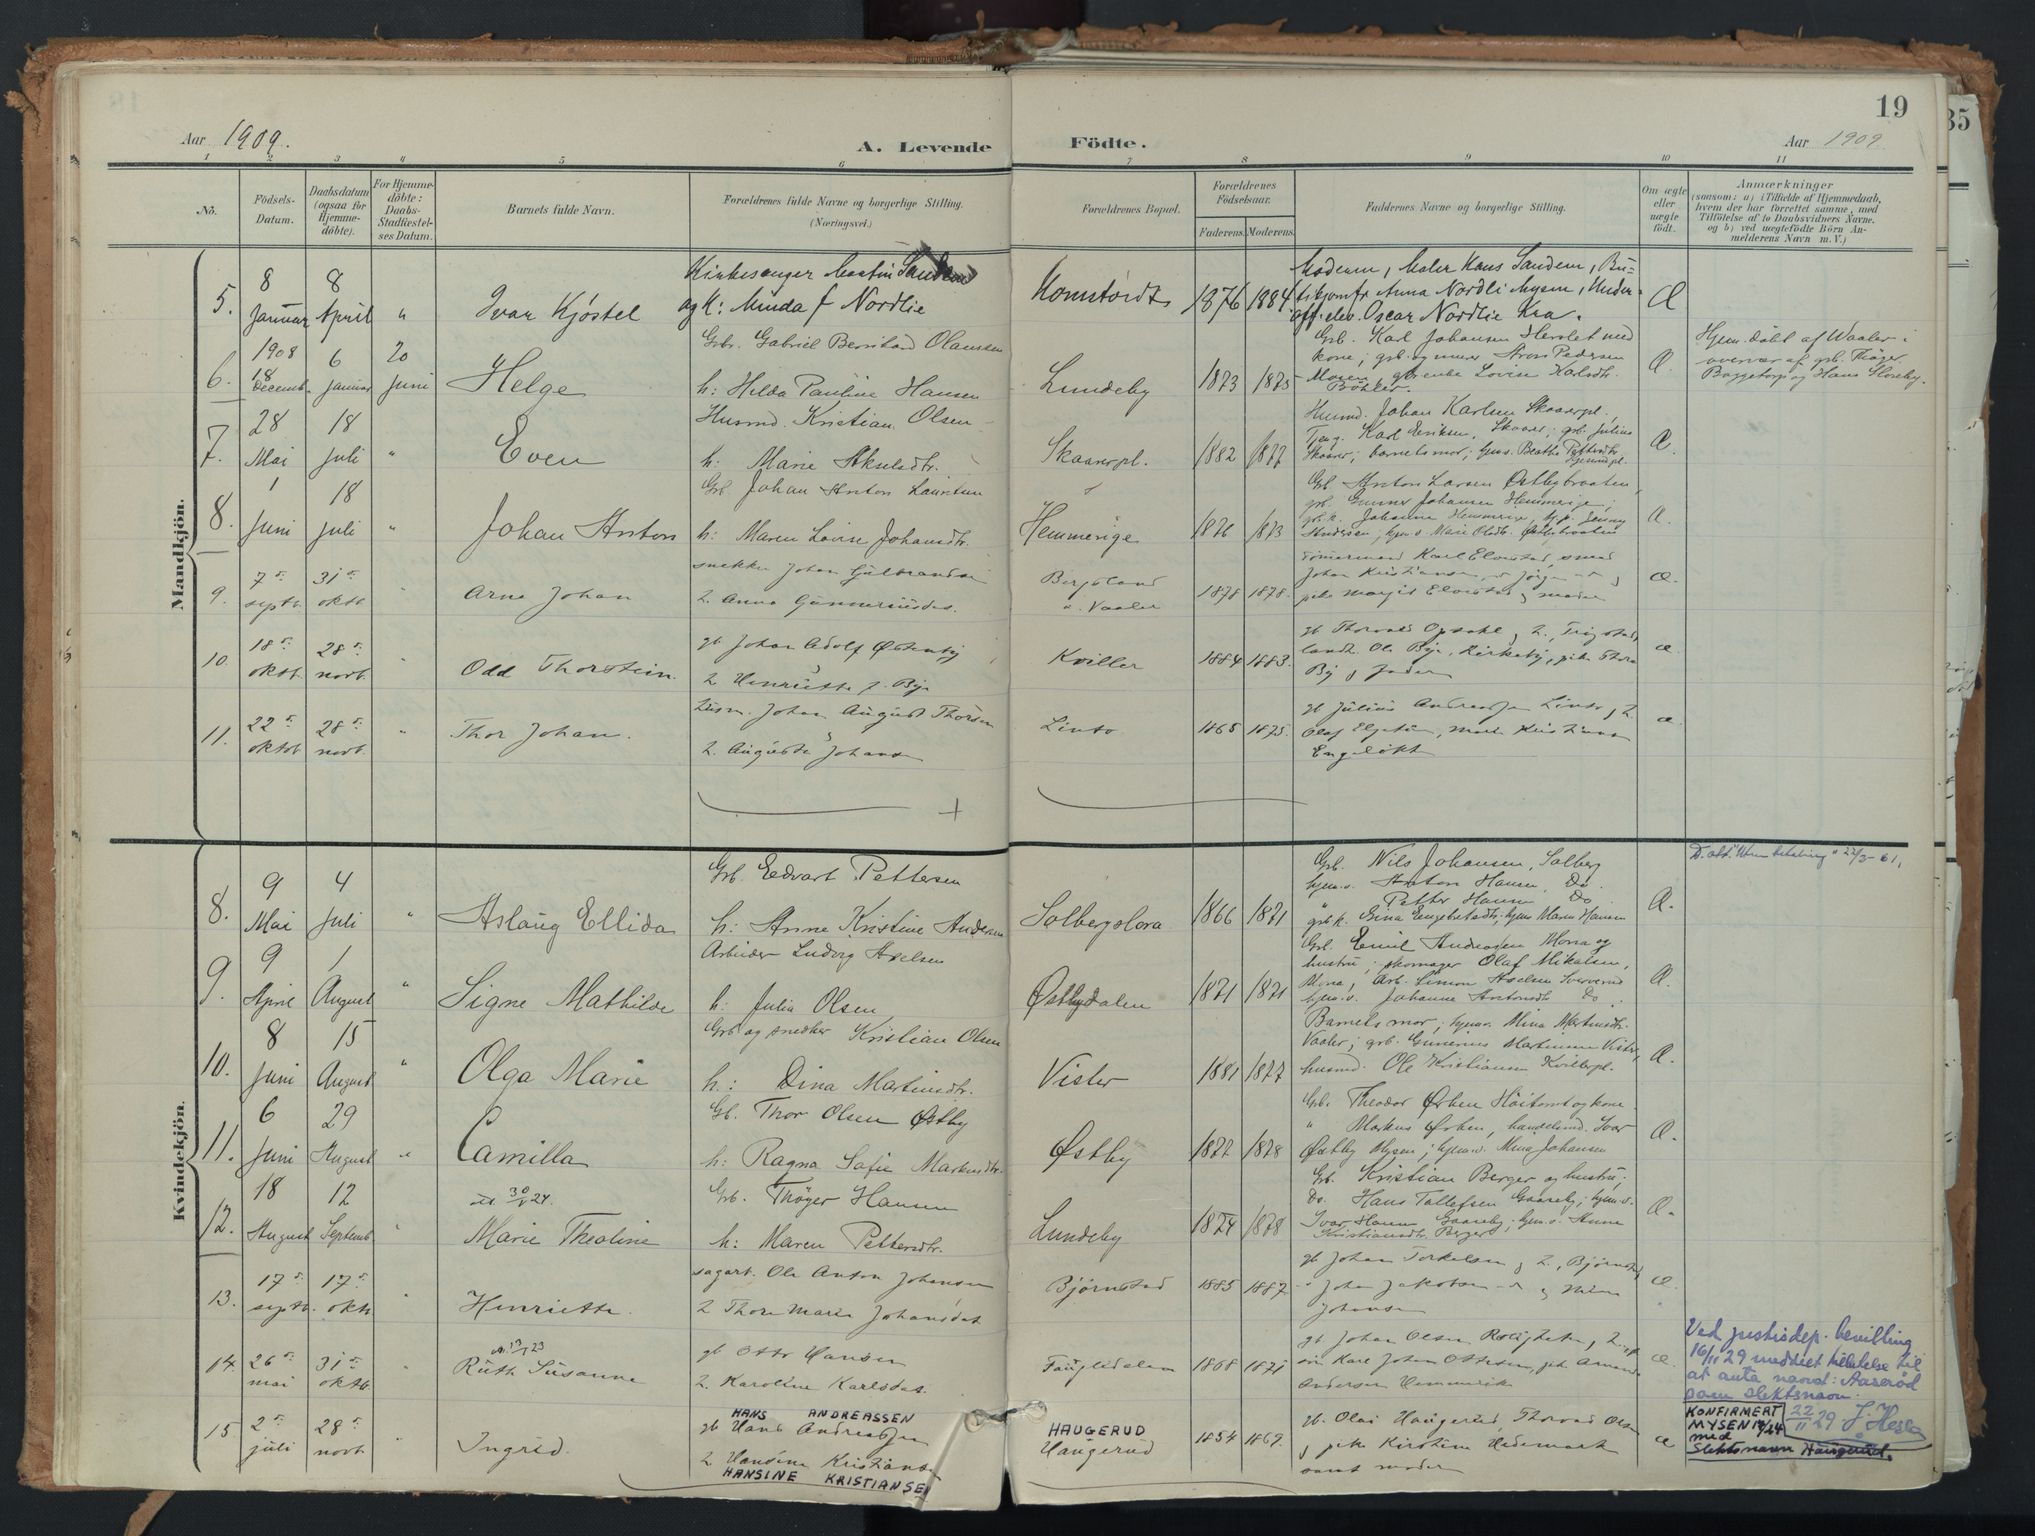 19
35
Aar 1909.
A. Levende Födte.
Aar 1909.
1 2 3 4 5 6 7 8 9 10 11
No.
Födsels-
Datum.
Daabsdatum
(ogsaa for
Hjemme-
döbte).
For Hjemme-
döbte:
Daabs-
Stadfæstel-
ses Datum.
Barnets fulde Navn.
Forældrenes fulde Navne og borgerlige Stilling.
(Næringsvei.)
Forældrenes Bopæl.
Forældrenes
Födselsaar.
Faderens. Moderens.
Faddernes Navne og borgerlige Stilling.
Om ægte
eller
uægte
födt.
Anmærkninger
(saasom: a) i Tilfælde af Hjemmedaab,
hvem der har forrettet samme, med
Tilföielse af to Daabsvidners Navne.
og b) ved uægtefödte Börn An-
melderens Navn m. V.)
Mandkjön.
5. 8 Januar 8 April " Ivar Kjøstel
Kirkesanger Martin Sandem
og k: Minda f Nordlie
Komstordt 1876 1884
Moderen, Maler Hans Sandem, Bu-
tikjomfr Anna Nordli Mysen, Under-
off. elev. Oscar Nordlie Kra.
Æ
6. 1908 18 Decemb. 6 Januar 20 Juni Helge
Grb. Gabriel Bernhard Olausen
h: Hilda Pauline Hansen
Lundeby 1873 1875
Grb. Karl Johansen Herslet med
kone; grb. og murer Aron Pedersen
Moren, enke Lovise Karlsdtr.
Æ.
Hjem. døbt af Waaler i
overvær af grb. Thøger
Baggetorp og Hans Sloreby.
7. 28 Mai 18 Juli " Even
Husmd. Kristian Olsen
h: Marie Akselsdtr.
Skaarerpl. 1882 1877
Husmd. Johan Karlsen Skaarerpl.,
Tjeng. Karl Eriksen, Skaarer; grb. Julius
Skaarer; barnets mor; hjmv. Beathe Pettersdtr
Æ.
8. 1 Juni 18 Juli " Johan Anton
Grb. Johan Anton Laurtun
h: Maren Lovise Johansdtr.
Hemmerige 1876 1873
Grb Anton Larsen Østbybraaten,
grb. Gunner Johansen Hemmerige;
grb.k. Johanne Hemmerige hjp. Jenny
Andersen; hjm.v. Marie Olsdtr. Østbybraaten
Æ.
9. 7de septb. 31te oktb " Arne Johan
snekker Johan Gulbrandsen
h. Anna Gunneriusdat.
Bergsland i Vaaler 1878 1878.
tømermand Karl Elvestad, smed
Johan Kristiansen, Jørgen
pike Margit Elvestad og moder
æ.
10. 18de oktb. 28de novb. " Odd Thorstein.
gb Johan Adolf Østenby
h Henriette f. Bye
Kviller 1884 1883.
gb Thorvald Opsahl og h., Trøgstad,
landh. Ole Bye, Kirkeby, pike Thora
By og fader
æ.
11. 22de oktob 28de novb. " Thor Johan.
husm. Johan August Thorsen
h. Augusta Johansen
Linto 1865 1875.
gb Julius Andreassen Linto og h.
Olaf Elgetun, Kristianne
Engeløkt
æ.
+
Kvindekjön.
8. 9 Mai 4 Juli " Aslaug Ellida
Grb. Edvart Pettersen
h: Anne Kristine Andersen
Solbergslora 1866 1871
Grb. Nils Johansen, Solberg
hjm.v. Anton Hansen, Do.
" Petter Hansen Do
grb.k. Gina Engebretsdtr, hjmv Maren Hansen
Æ.
D. att. "Uten betaling" 22/3-61,
9. 9 April 1 August " Signe Mathilde
Arbeider Ludvig Axelsen
h: Julia Olsen
Østbydalen 1871 1871
Grb. Emil Andreasen Mona og
hustru; skomager Olaf Mikalsen,
Mona; Arb. Simon Axelsen Sververud
hjm.v. Johanne Antonsdtr Do.
Æ.
10. 8 Juni 15 August " Olga Marie
Grb og snedker Kristian Olsen
h.: Dina Martinsdtr.
Vister 1881 1877
Barnets mor; hjmv. Mina Martinsdtr.
Vaaler; grb. Gunerius Martinsen Vister,
husmd. Ole Kristiansen Kvillerpl.
Æ.
11. 6 Juni 29 August " Camilla
Gb. Thor Olsen Østby
h: Ragna Sofie Markusdtr.
Østby 1877 1878
Grb. Theodor Ørken Haitomt og kone
" Markus Ørken, handelsmd. Ivar
Østby Mysen; hjm.v. Mina Johansen
Æ.
12. 18 August 12 Septemb. " Marie Theoline
att 30/1 24.
Grb. Thøger Hansen
h: Maren Pettersdtr.
Lundeby 1874 1878
Gb. Kristian Berger og hustru;
Do. Hans Tollefsen Gaareby; hjm.v.
Ivar Hansen Gaareby; hjm.v. Anne
Kristiansdtr. Berger
Æ.
13. 17de septb. 17de oktb " Henriette.
sagarb. Ole Anton Johansen
h Thora Marie Johansdat
Bjørnstad 1885 1887
gb Johan Torkelsen og h., Bjørnstad
" Johan Jakobsen og Mina
Johansen
æ.
14. 26de mai 31te oktb. Ruth Susanne
att. 13/1 23
gb Otto Hansen
h. Karoline Karlsdat.
Fugledalen 1868 1871
gb. Johan Olsen Rolighet og h.,
Karl Johan Ottesen, pike Amanda
Andersen Hemmerik
æ.
Ved justisdep. bevilling
16/11 29 meddelt tillatelse til
at anta navnet: Aaserød
som slektsnavn.
22/11 29 J. Hesla
15 2de juli 28de novb. Ingrid.
HANS ANDREASSEN
gb Hans Andreassen
h Hansine Kristiansen
HANSINE KRISTIANSEN
HAUGERUD
Haugerud 1854 1867.
gb. Olai Haugerud, Thorvald Olsen
og pike Kirstine Hedemark
samt moder
æ
KONFIRMERT
MYSEN 12/24
med
Slektsnavn Haugerud.